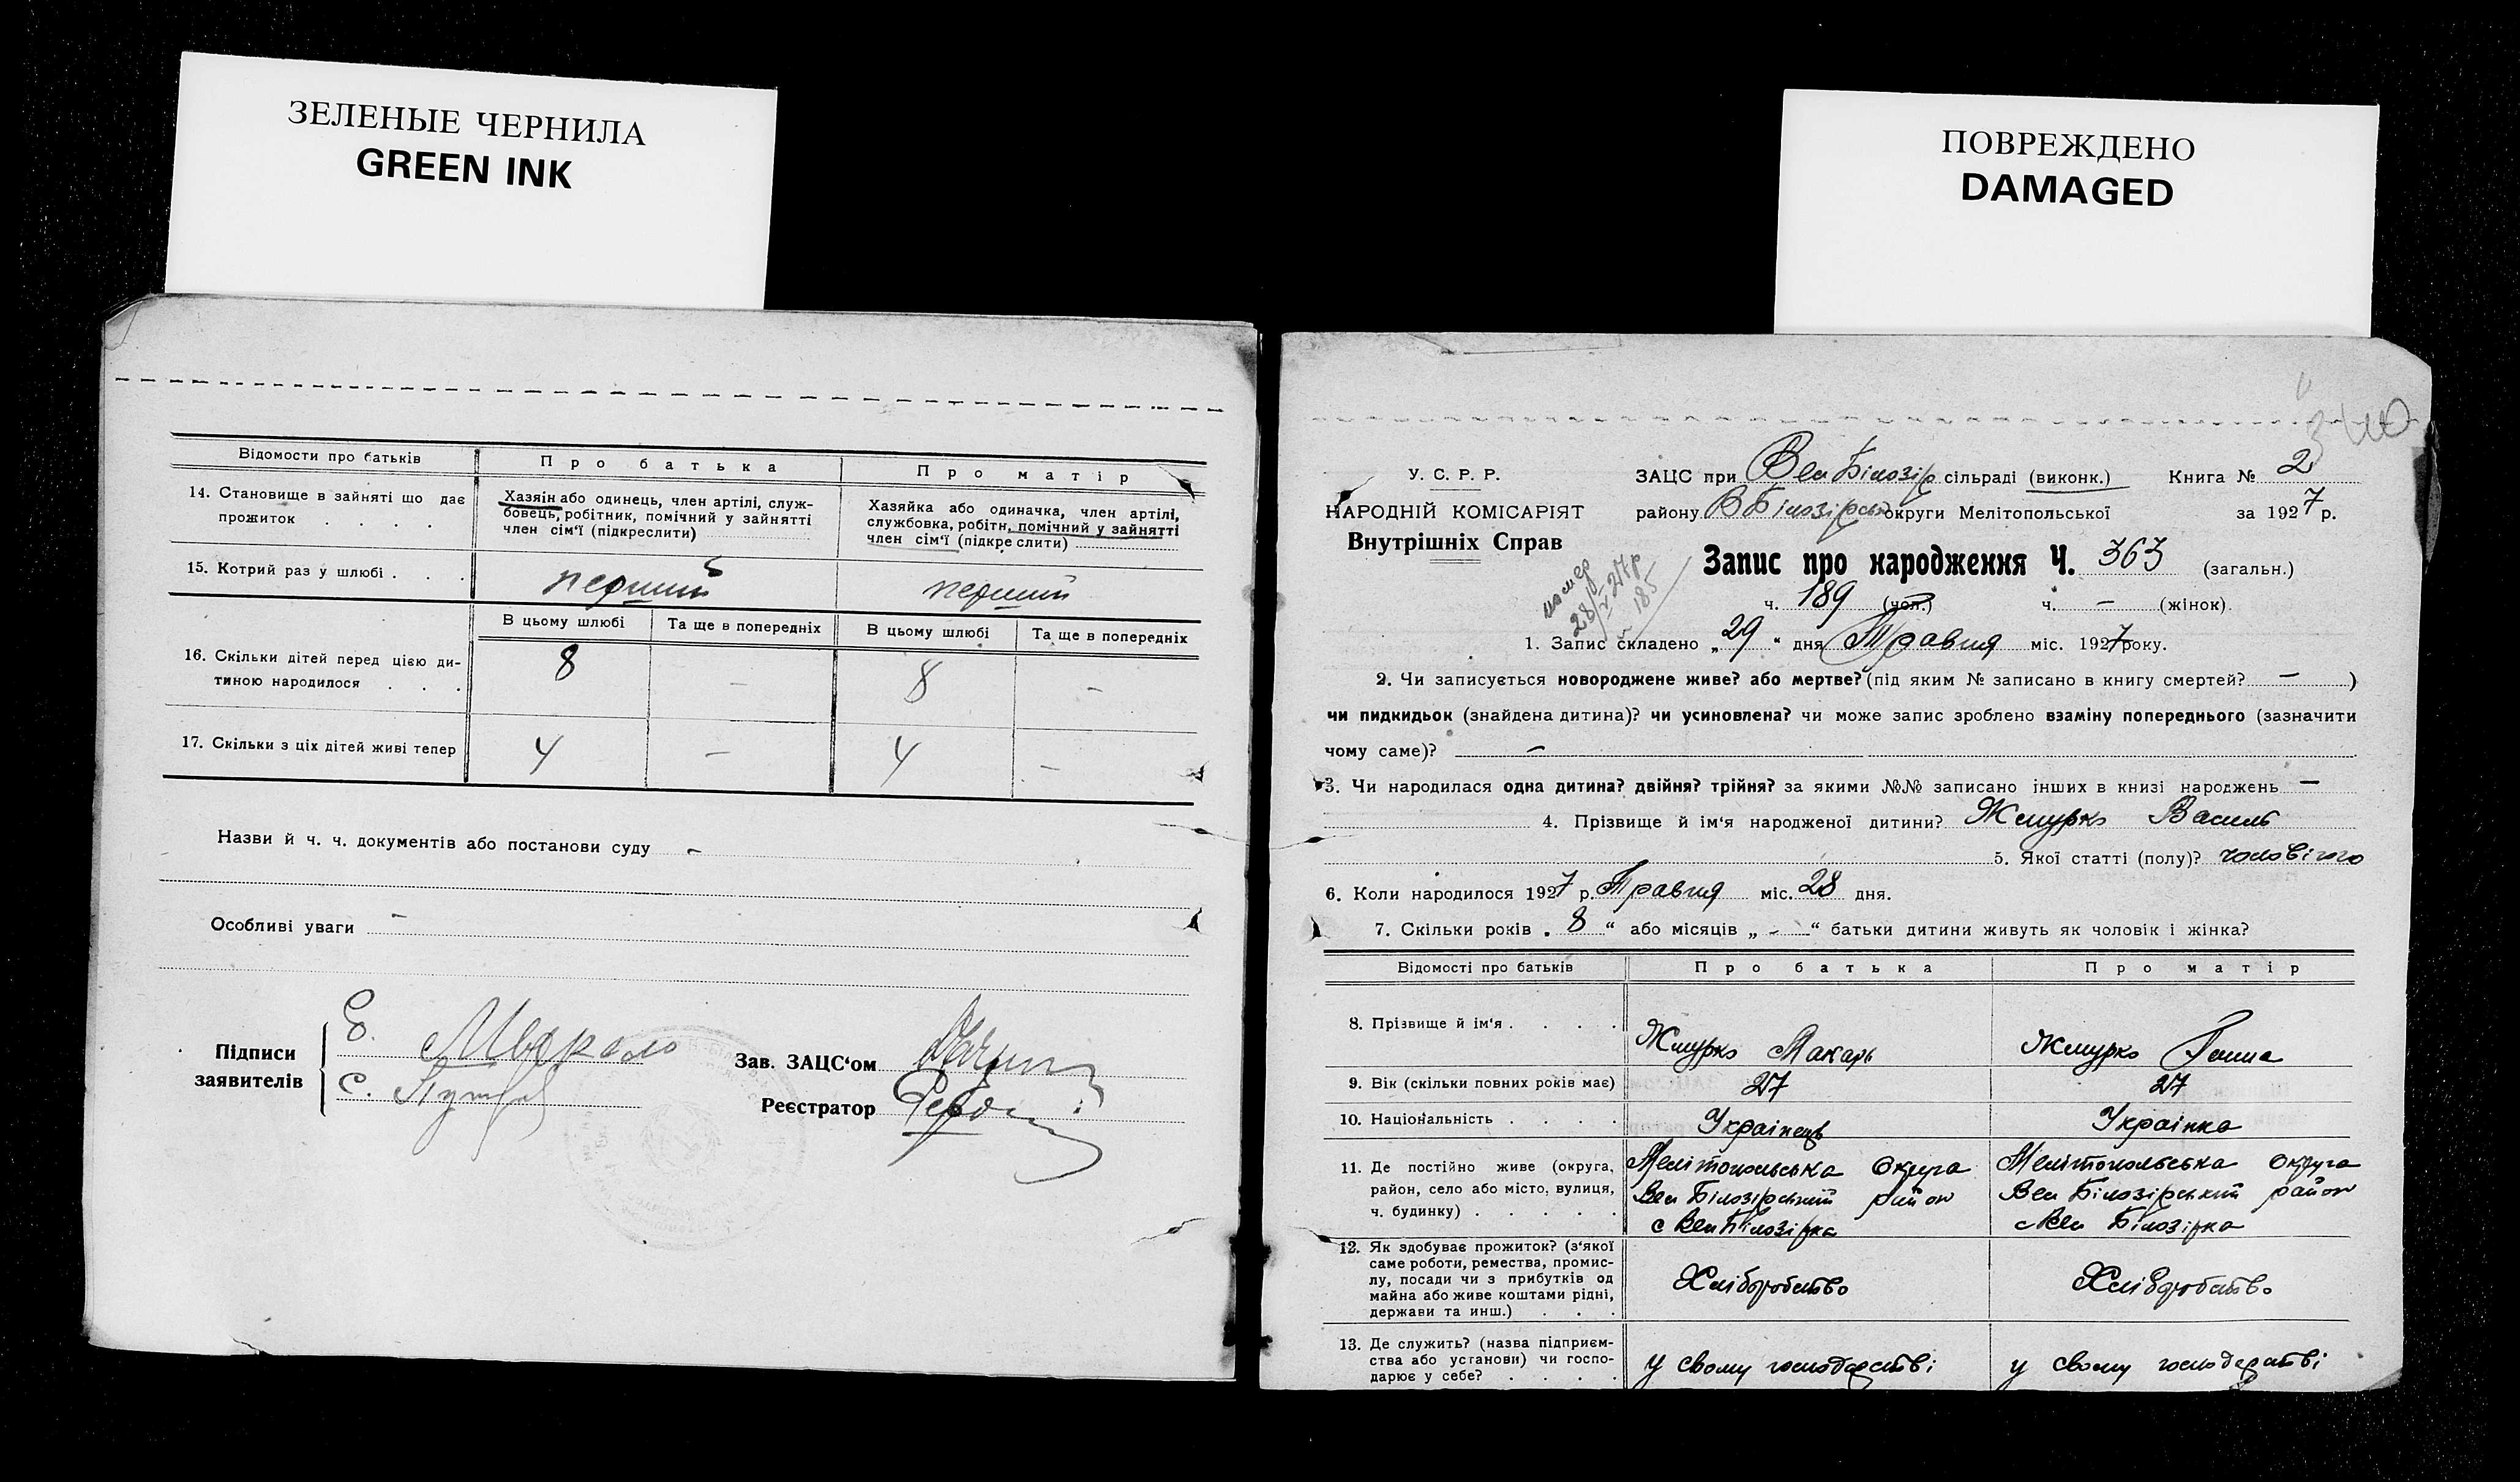 ЗЕЛЕНЫЕ ЧЕРНИЛА
GREEN INK
ПОВРЕЖДЕНО
DAMAGED
Відомости про батьків
Про батька
Про матір
14. Становище в зайняті що дає прожиток . . . .
Хазяін або одинець, член артілі, служ-
бовець, робітник, помічний у зайнятті
член сім'ї (підкреслити)
Хазяйка або одиначка, член артілі,
службовка, робітн. помічний у зайнятті
член сім'ї (підкреслити)
15. Котрий раз у шлюбі . . .
перший
перший
В цьому шлюбі
Та ще в попередніх
В цьому шлюбі
Та ще в попередніх
16. Скільки дітей перед цією ди-
тиною народилося . . .
8 – 8 –
17. Скільки з ціх дітей живі тепер
4 – 4 –
Назви й ч. ч. документів або постанови суду –
Особливі уваги –
Підписи
заявителів
Зав. ЗАЦС'ом
Реєстратор
У. С. Р. Р.
НАРОДНІЙ КОМІСАРІЯТ
Внутрішніх Справ
ЗАЦС при Вел Білозір сільраді (виконк.) Книга № 2
району В Білозірськ округи Мелітопольської за 1927 р.
помер
28/V 27 р
185
Запис про народження Ч. 363 (загальн.)
ч. 189 (чол.) ч. – (жінок).
1. Запис складено „29“ дня Травня міс. 1927 року.
2. Чи записується новороджене живе? або мертве? (під яким № записано в книгу смертей? – )
чи пидкидьок (знайдена дитина)? чи усиновлена? чи може запис зроблено взаміну попереднього (зазначити
чому саме)? –
3. Чи народилася одна дитина? двійня? трійня? за якими №№ записано інших в книзі народжень –
4. Прізвище й ім'я народженої дитини? Жмурко Василь
5. Якої статті (полу)? чоловічого
6. Коли народилося 1927 р. Травня міс. 28 дня.
7. Скільки років „8“ або місяців „-“ батьки дитини живуть як чоловік і жінка?
Відомості про батьків
Про батька
Про матір
8. Прізвище й ім'я . . . .
Жмурко Макарь
Жмурко Ганна
9. Вік (скільки повних років має)
27
27
10. Національність . . . .
Українець
Українка
11. Де постійно живе (округа,
район, село або місто, вулиця,
ч. будинку) . . . . .
Мелітопольська Округа
Вел Білозірський район
с Вел Білозірка
Мелітопольська округа
Вел Білозірський район
с Вел Білозірка
12. Як здобуває прожиток? (з'якої
саме роботи, ремества, промис-
лу, посади чи з прибутків од
майна або живе коштами рідні,
держави та инш.) . . .
Хліборобство
Хліборобство
13. Де служить? (назва підприєм-
ства або установи) чи госпо-
дарює у себе? . . . .
у свому господарстві
у свому господарстві